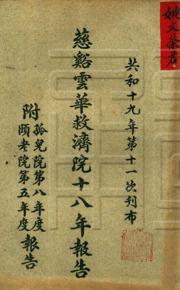 共和十九年第十一次刊布
慈谿雲華救濟院十八年報告
附
孤兒院第八年度
頤老院第五年度
報告